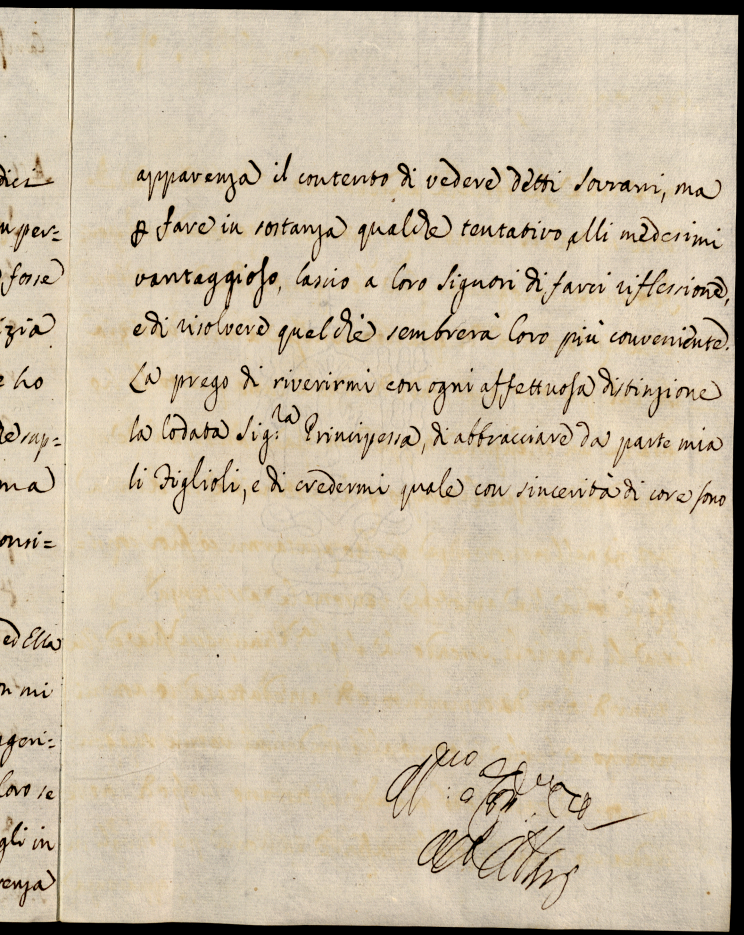 dici
n per=
fosse
izia
e ho
e sup=
ma
onsi=
ed Ella
n mi
ngeri=
loro se
gli in
venza
apparenza il contento di vedere detti Sovrani, ma
fare in sostanza qualche tentativo alli medesimi
vantaggioso, lascio a loro Signori di farci riflessione,
e di risolvere quel che sembrerà loro più conveniente.
La prego di riverirmi con ogni affettuosa distinzione
la lodata Sig:ra Principessa, di abbracciare da parte mia
li Figlioli, e di credermi quale con sincerità di core sono